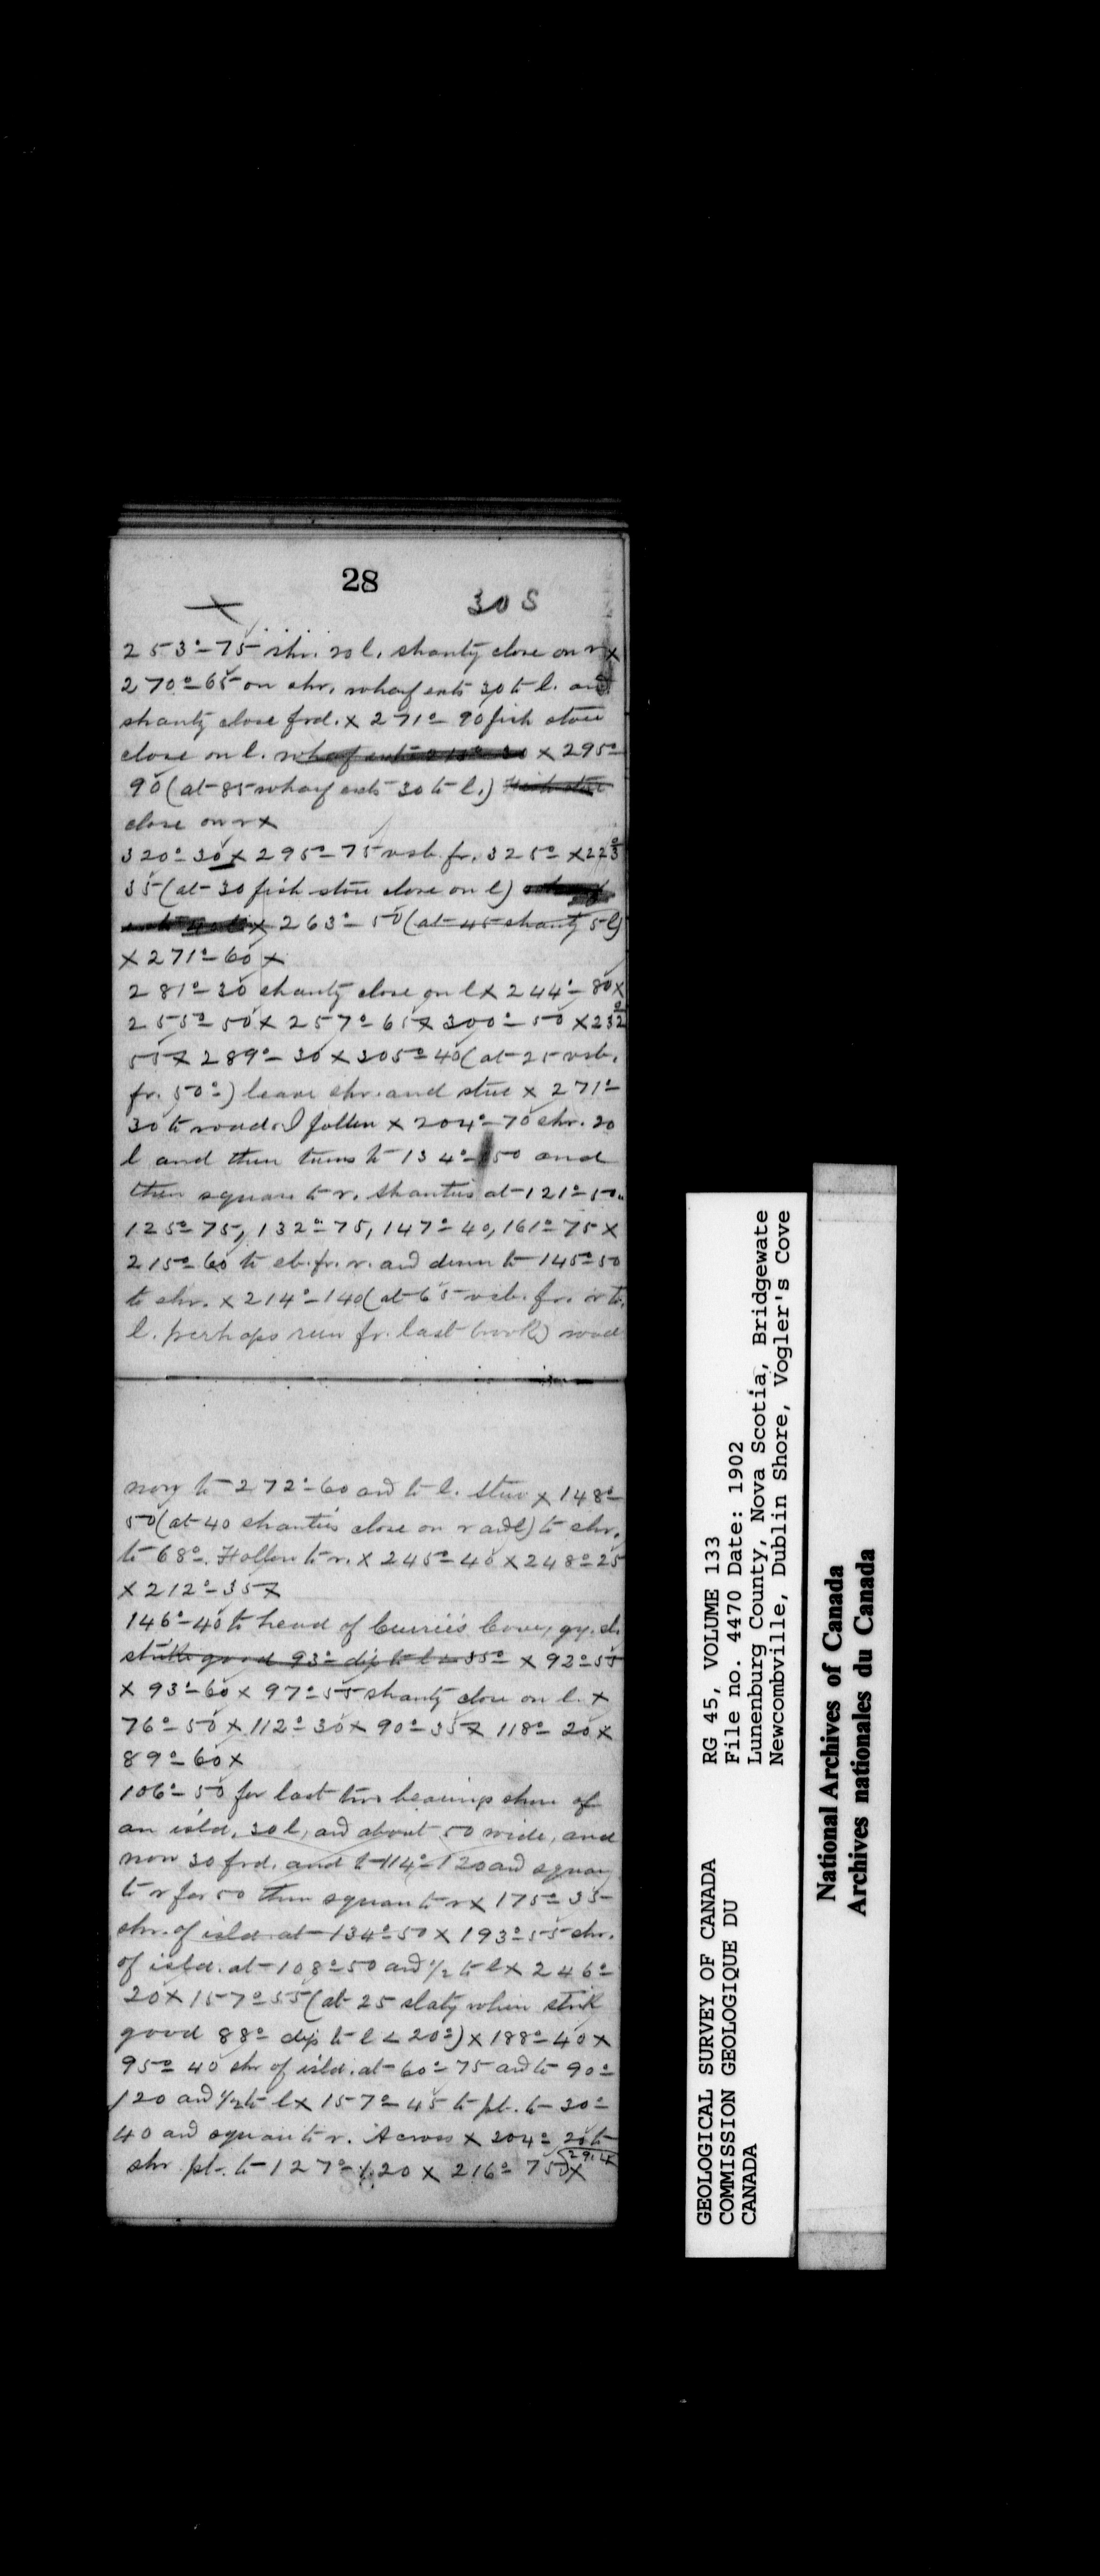 28
× 30 S
253°-75 shr. 20 l. shanty close on r ×
270°-65 on shr. wharf exts 30 to l. and
shanty close frd. × 271°-90 fish store
close on l. × 295°-
90 (at 85 wharf exts 30 to l.)
close on r ×
320°-30 × 295°-75 vsb. fr. 325° × 223°
35 (at 30 fish store close on l)
× 263°-50 (at 45 shanty 5 l)
× 271°-60 ×
281°-30 shanty close on l × 244°-80 ×
255°-50 × 257°-65 × 300°-50 × 232°
55 × 289°-30 × 305°-40 (at 25 vsb.
fr. 50°) leave shr. and × 271°-
30 to road I follow × 204°-70 shr. 20
l and then turns to 134°-50 and
then square to r. shanties at 121°-50
125°-75, 132°-75, 147°-40, 161°-75 ×
215°-60 to eb. fr. r. and down to 145°-50
to shr. × 214°-140 (at 65 vsb. fr. r to
l. perhaps run fr. last brook) road
now to 272°-60 and to l. × 148°-
50 (at 40 shanties close on r and l) to shr.
to 68°. Follow to r. × 245°-40 × 248°-25
× 212°-35 ×
146°-40 to head of Currie's Cove, gy. sl.
strike good 93° dip to l < 35° × 92°-55
× 93°-60 × 97°-55 shanty close on l. ×
76°-50 × 112°-30 × 90°-35 × 118°-20 ×
89°-60 ×
106°-50 for last two bearings shore of
an isld. 30 l, and about 50 wide, and
now 30 frd. and to 114°-120 and square
to r for 50 then square to r × 175°-35
shr. of isld. at 134°-50 × 193°-55 shr.
of isld. at 108°-50 and ½ to l × 246°-
20 × 157°-55 (at 25 slaty whin strik
good 88° dip to l < 20°) × 188°-40 ×
95°-40 shr of isld. at 60°-75 and to 90°-
120 and ½ to l × 157°-45 to pt. to 30°-
40 and square to r. Across × 204°-20 to
shr pt. to 127°-120 × 216°-75 ×
29.4
GEOLOGICAL SURVEY OF CANADA
COMMISSION GEOLOGIQUE DU
CANADA
RG 45, VOLUME 133
File no. 4470 Date: 1902
Lunenburg County, Nova Scotia, Bridgewate
Newcombville, Dublin Shore, Vogler's Cove
National Archives of Canada
Archives nationales du Canada